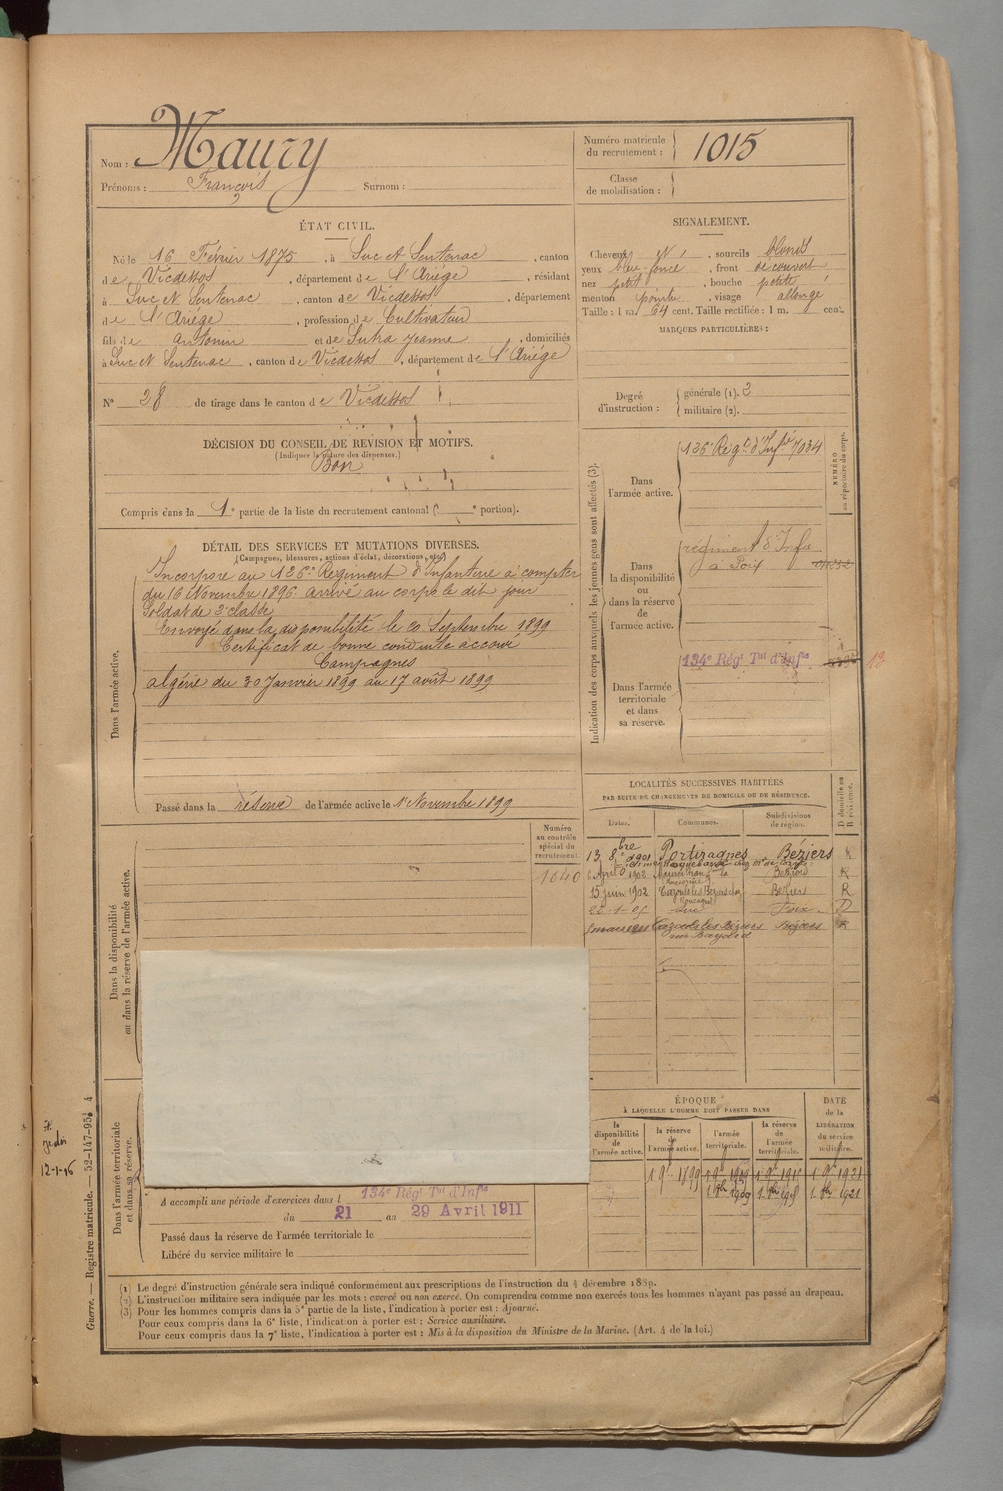 Nom : Maury
Prénoms : François Surnom :
Numéro matricule du recrutement : 1015
Classe de mobilisation :
ÉTAT CIVIL.
Né le 16 Février 1875, à Suc et Sentenac, canton
de Vicdessos, département de l'Ariège, résidant
à Suc et Sentenac, canton de Vicdessos, département
de l'Ariège, profession de Cultivateur
fils de Antonin et de Sutra Jeanne, domiciliés
à Suc et Sentenac, canton de Vicdessos, département de l'Ariége
N° 28 de tirage dans le canton de Vicdessos
SIGNALEMENT.
Cheveux , sourcils blonds
yeux bleu foncé, front découvert
nez petit, bouche petite
menton pointu, visage allongé
Taille : 1 m. 64 cent. Taille rectifiée : 1 m. cent.
MARQUES PARTICULIÈRES :
Degré d'instruction : générale (1). 2
militaire (2).
DÉCISION DU CONSEIL DE REVISION ET MOTIFS.
(Indiquer la nature des dispenses.)
Bon
Compris dans la 1e partie de la liste du recrutement cantonal ( e portion).
DÉTAIL DES SERVICES ET MUTATIONS DIVERSES.
(Campagnes, blessures, actions d'éclat, décorations, etc.)
Dans l'armée active.
Incorporé au 126e Régiment d'Infanterie à compter
du 16 Novembre 1896. arrivé au corps le dit jour
Soldat de 2e classe
Envoyé dans la disponibilité le 20 Septembre 1899
Certificat de bonne conduite accordé
Campagnes
algérie du 30 Janvier 1899 au 17 août 1899
Passé dans la réserve de l'armée active le 1er Novembre 1899
Indication des corps auxquels les jeunes gens sont affectés (3).
NUMÉRO au répertoire du corps.
Dans l'armée active.
126e Régt d'Infie 7034
Dans la disponibilité ou dans la réserve de l'armée active.
régiment d'Infie
à Foix
Dans l'armée territoriale et dans sa réserve.
134e Régt Tal d'Infie 13
LOCALITÉS SUCCESSIVES HABITÉES
PAR SUITE DE CHANGEMENTS DE DOMICILE OU DE RÉSIDENCE.
Dates. Communes. Subdivisions de région. D domicile ou R résidence.
13 8bre 1901 Portiragnes Béziers R
6 Avril 1902 Maureilhan Béziers R
15 juin 1902 Cazouls les Béziers Béziers R
22-1-05 Suc Foix D
Cazouls les Béziers Béziers R
Numéro au contrôle spécial du recrutement.
1040
Dans la disponibilité ou dans la réserve de l'armée active.
Dans l'armée territoriale et dans sa réserve.
A accompli une période d'exercices dans l 134e Régt Tal d'Infie
du 21 au 29 Avril 1911
Passé dans la réserve de l'armée territoriale le
Libéré du service militaire le
ÉPOQUE
À LAQUELLE L'HOMME DOIT PASSER DANS
DATE de la LIBÉRATION du service militaire.
la disponibilité de l'armée active. la réserve de l'armée active. l'armée territoriale. la réserve de l'armée territoriale.
1 9e 1899 1 9e 1909 1 9e 1915 1 9e 1921
1909 1915 1921
12-1-16
Guerre. — Registre matricule. — 52-147-95. 4
(1) Le degré d'instruction générale sera indiqué conformément aux prescriptions de l'instruction du 4 décembre 1889.
(2) L'instruction militaire sera indiquée par les mots : exercé ou non exercé. On comprendra comme non exercés tous les hommes n'ayant pas passé au drapeau.
(3) Pour les hommes compris dans la 5e partie de la liste, l'indication à porter est : Ajourné.
Pour ceux compris dans la 6e liste, l'indication à porter est : Service auxiliaire.
Pour ceux compris dans la 7e liste, l'indication à porter est : Mis à la disposition du Ministre de la Marine. (Art. 4 de la loi.)